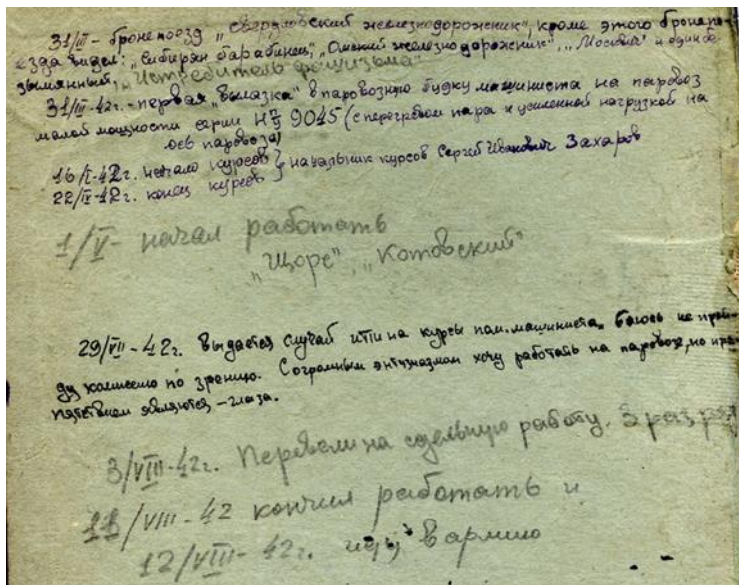 31/III - бронепоезд „Свердловский железнодорожник", кроме этого бронепо-
езда видел: „Сибиряк барабинец", „Омский железнодорожник", „Москвич" и один бе-
зымянный, „Истребитель фашизма"
31/III-42г. - первая „вылазка" в паровозную будку машиниста на паровоз
малой мощности серии 9045 (с перегревом пара и усиленной нагрузкой на
ось паровоза)
16/I-42г. начало курсов } начальник курсов Сергей Иванович Захаров
22/IV-42г. конец курсов
1/V - начал работать
„Щорс", „Котовский"
29/VII-42г. Выдается случай итти на курсы пом. машиниста. Боюсь не прой-
ду комиссию по зрению. С огромным энтузиазмом хочу работать на паровозе, но пре-
пятствием являются - глаза.
3/VIII-42г. Перевели на сдельную работу. 3 разряд
11/VIII-42 кончил работать и
12/VIII-42г. иду в армию